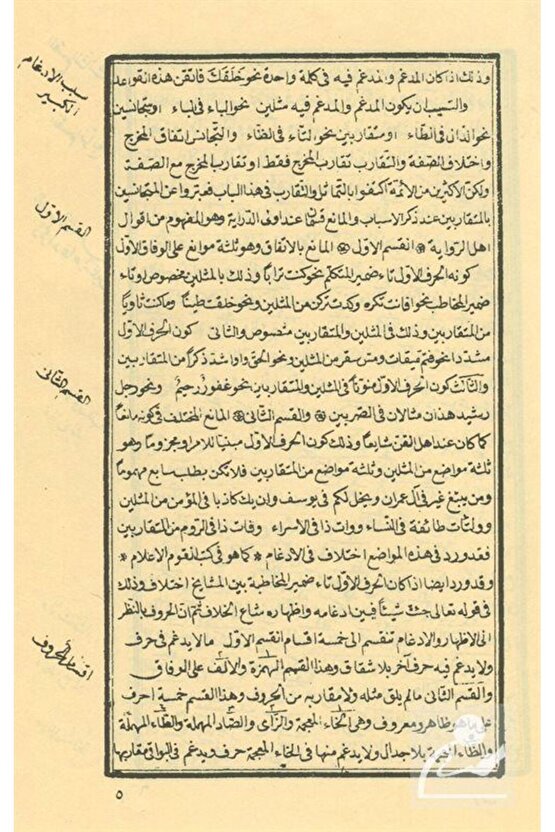 وذلك اذا كان المدغم والمدغم فيه فى كلمة واحدة نحو خلقك فاتقن هذه القواعد
سبب الادغام
الكبير
والسبب ان يكون المدغم والمدغم فيه مثلين نحو الباء فى الباء او متجانسين
نحو الدال فى الطاء او متقاربين نحو الثاء فى الظاء والتجانس اتفاق المخرج
واختلاف الصفة والتقارب تقارب المخرج فقط او تقارب المخرج مع الصفة
ولكن الاكثرين من الائمة اكتفوا بالتماثل والتقارب فى هذا الباب فعبروا عن المتجانسين
القسم الاول
بالمتقاربين عند ذكر الاسباب والمانع قسمان عند اولى الدراية وهو المفهوم من اقوال
اهل الرواية * القسم الاول * المانع بالاتفاق وهو ثلثة موانع على الوفاق الاول
كونه الحرف الاول تاء ضمير المتكلم نحو كنت ترابا وذلك بالمثلين مخصوص او تاء
ضمير المخاطب نحو افانت تكره وكدت تركن من المثلين ونحو خلقت طينا وما كنت ثاويا
من المتقاربين وذلك فى المثلين والمتقاربين منصوص والثانى كون الحرف الاول
مشددا نحو فتم ميقات ومس سقر من المثلين ونحو الحق واو اشد ذكرا من المتقاربين
القسم الثانى
والثالث كون الحرف الاول منونا فى المثلين والمتقاربين نحو غفور رحيم ونحو رجل
رشيد هذان مثالان فى الضربين * والقسم الثانى * المانع المختلف فى كونه مانعا
كما كان عند اهل الفن شايعا وذلك كون الحرف الاول مبنيا للامر او مجزوما وهو
ثلثة مواضع من المثلين وثلثة مواضع من المتقاربين فلا تكن بطلب سايع مهموما
ومن يبتغ غير فى آل عمران ويخل لكم فى يوسف وان يك كاذبا فى المؤمن من المثلين
وولتأت طائفة فى النساء ووآت ذا فى الاسراء وفات ذا فى الروم من المتقاربين
فقد ورد فى هذه المواضع اختلاف فى الادغام * كما هو فى كتب القوم الاعلام *
وقد ورد ايضا اذا كان الحرف الاول تاء ضمير المخاطبة بين المشايخ اختلاف وذلك
فى قوله تعالى جئت شيئا فبين ادغامه واظهاره شاع الخلاف ثم ان الحروف بالنظر
اقسام الحروف
الى الاظهار والادغام تنقسم الى خمسة اقسام القسم الاول ما لا يدغم فى حرف
ولا يدغم فيه حرف آخر بلا شقاق وهذا القسم الهمزة والالف على الوفاق
والقسم الثانى ما لم يلق مثله ولا مقاربه من الحروف وهذا القسم خمسة احرف
على ما هو ظاهر ومعروف وهى الخاء المعجمة والزاى والصاد المهملة والطاء المهملة
والظاء المعجمة بلا جدال ولا يدغم منها فى الخاء المعجمة حرف ويدغم فى البواقى مقاربها
٥